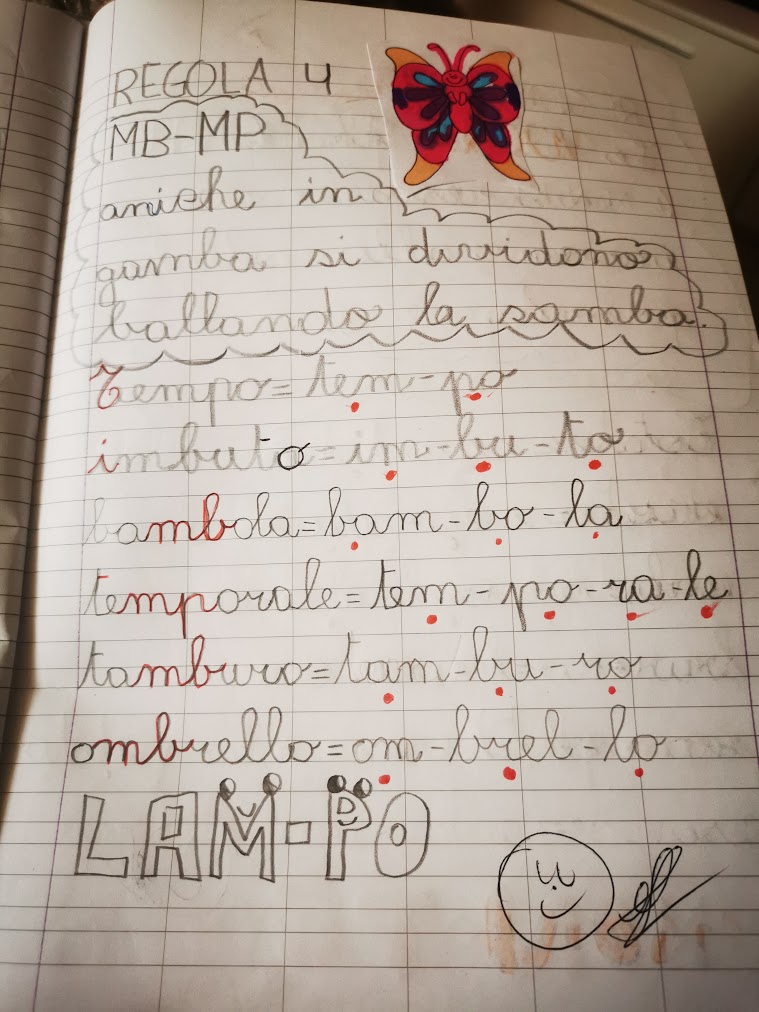 REGOLA 4
MB-MP
amiche in
gamba si dividono
ballando la samba.
Tempo=tem-po
imbuto=im-bu-to
bambola=bam-bo-la
temporale=tem-po-ra-le
tamburo=tam-bu-ro
ombrello=om-brel-lo
LAM-PO